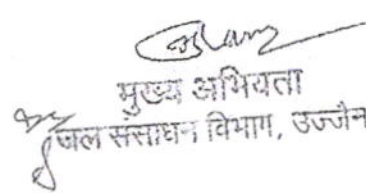 मुख्य अभियंता
जल संसाधन विभाग, उज्जैन